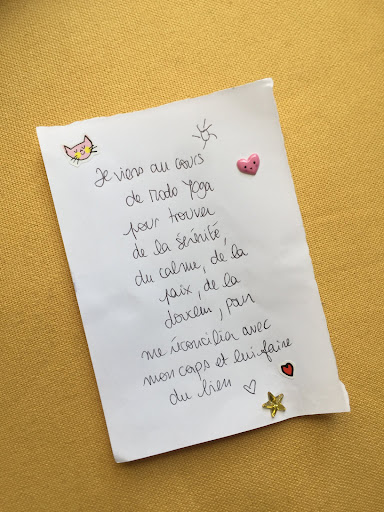 Je viens au cours
de Modo Yoga
pour trouver
de la sérénité,
du calme, de la
paix, de la
douceur, pour
me réconcilier avec
mon corps et lui faire
du bien